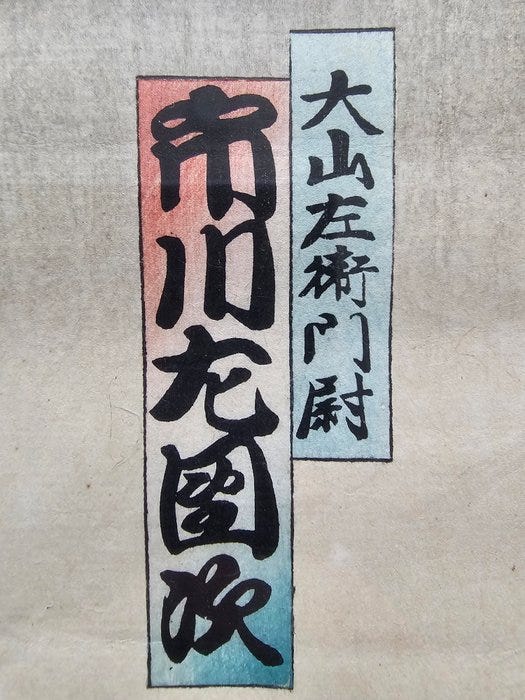 大山左衛門尉
市川左團次